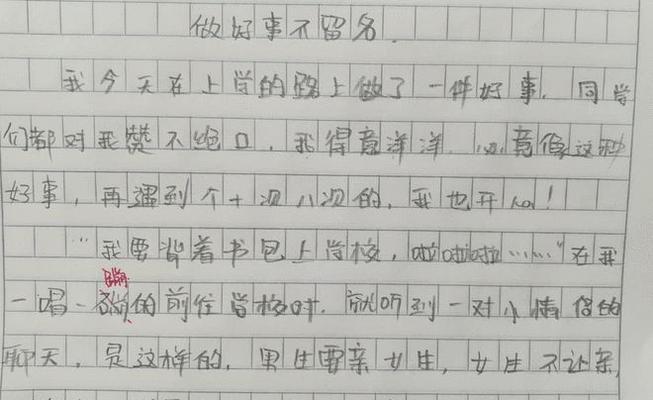 做好事不留名.
我今天在上学的路上做了一件好事.同学
们都对我赞不绝口,我得意洋洋.必竟像这种
好事,再遇到个十次八次的,我也开心!
"我要背着书包上学校,啦啦啦……"在我
蹦
一唱一的前往学校时.就听到一对小情侣的
聊天,是这样的,男生要亲女生,女生不让亲,